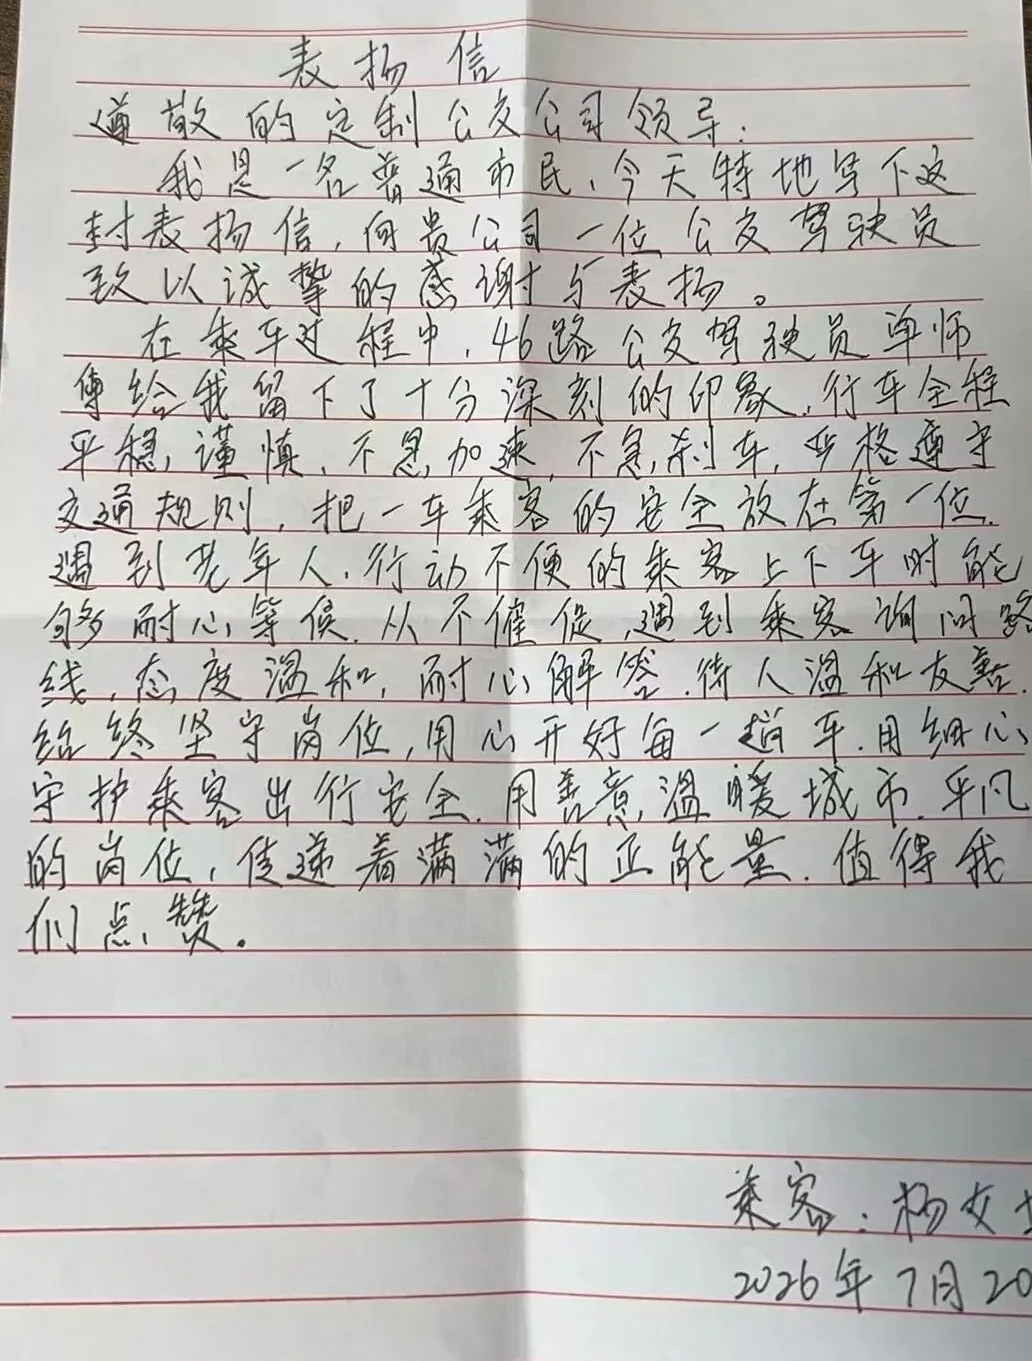 表扬信
遵敬的定制公交公司领导：
我是一名普通市民，今天特地写下这
封表扬信，向贵公司一位公交驾驶员
致以诚挚的感谢与表扬。
在乘车过程中，46路公交驾驶员单师
傅给我留下了十分深刻的印象，行车全程
平稳，谨慎，不急加速，不急刹车，严格遵守
交通规则，把一车乘客的安全放在第一位，
遇到老年人，行动不便的乘客上下车时能
够耐心等候，从不催促，遇到乘客询问路
线，态度温和，耐心解答，待人温和友善，
始终坚守岗位，用心开好每一趟车，用细心
守护乘客出行安全，用善意温暖城市，平凡
的岗位，传递着满满的正能量，值得我
们点赞。
乘客：杨女士
2026年7月20